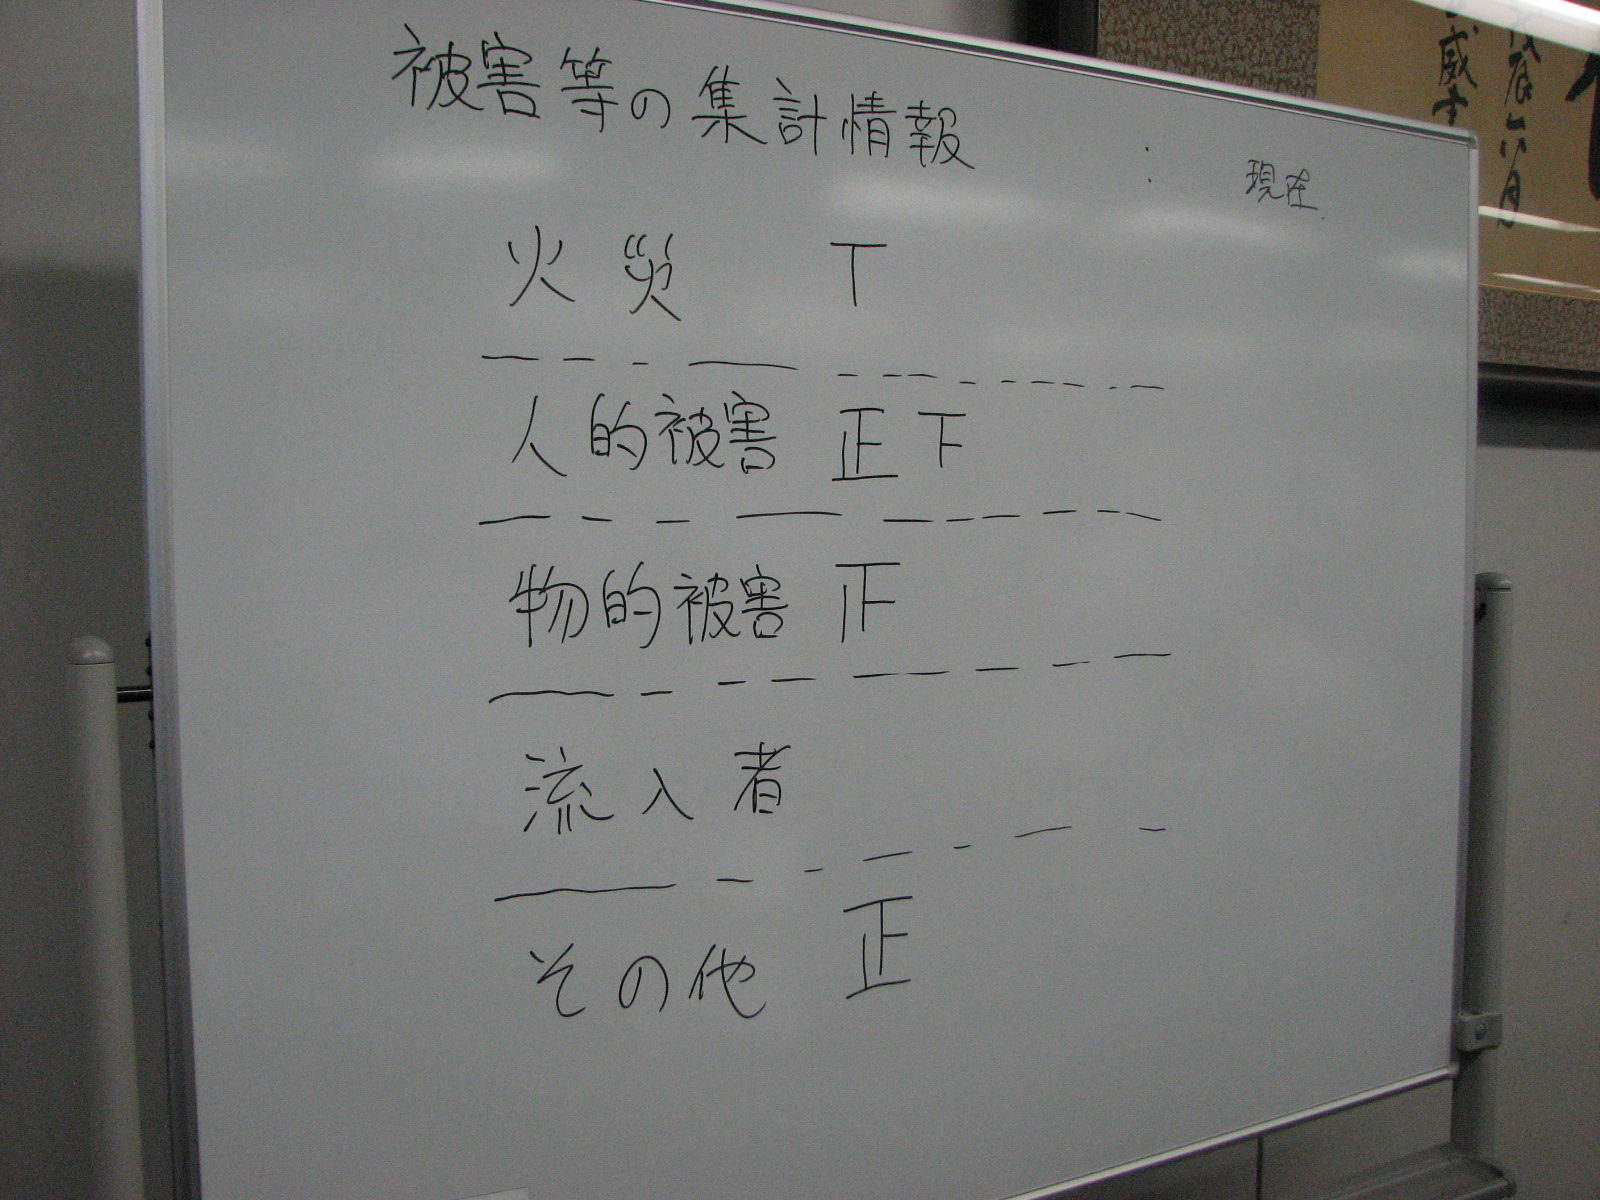 被害等の集計情報 : 現在
火災 丅
人的被害 正下
物的被害 𝍵
流入者
その他 正
辰六月